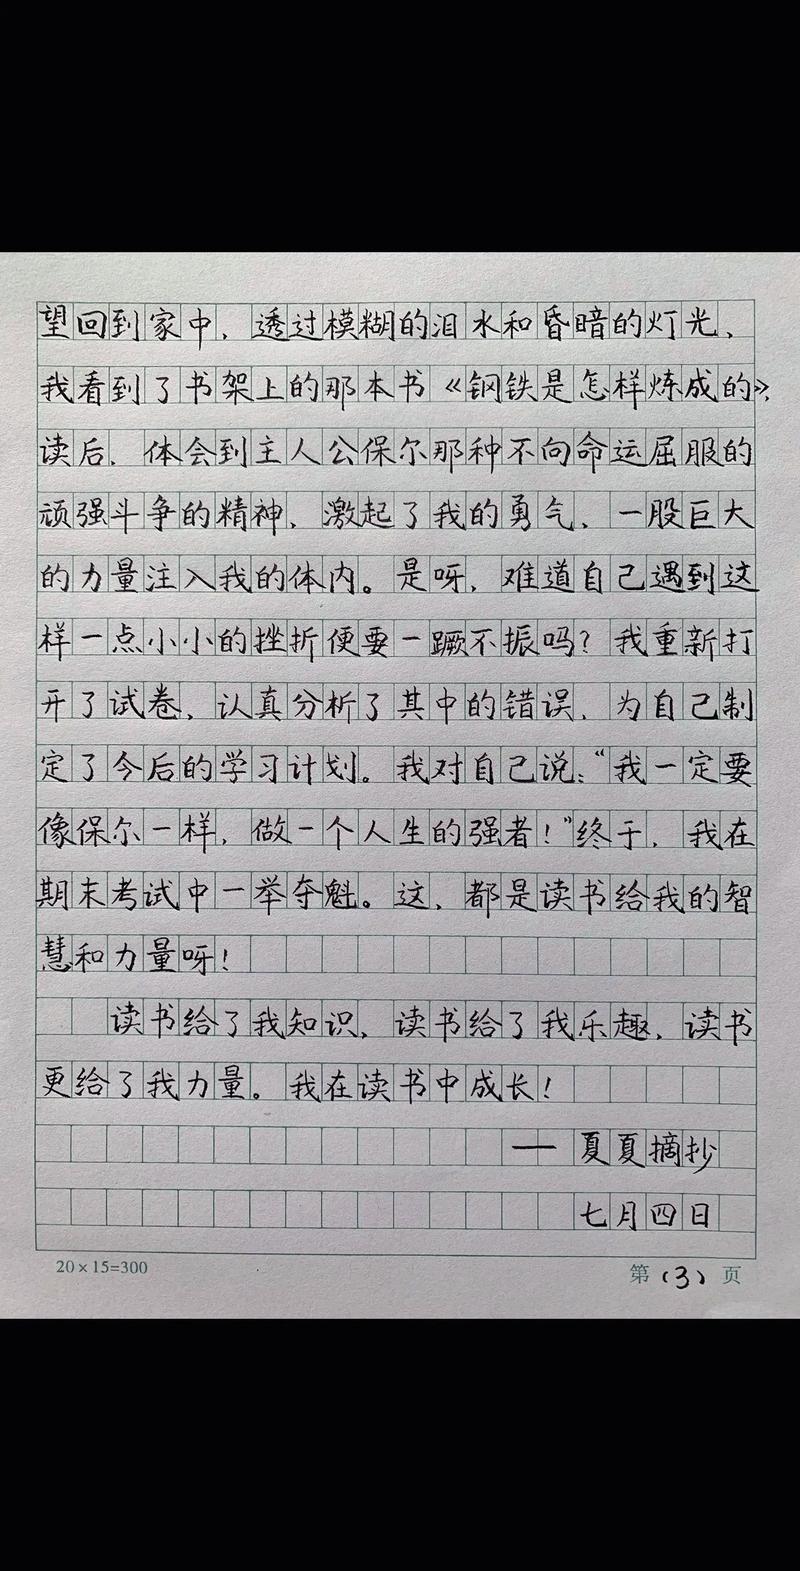 望回到家中，透过模糊的泪水和昏暗的灯光，
我看到了书架上的那本书《钢铁是怎样炼成的》，
读后，体会到主人公保尔那种不向命运屈服的
顽强斗争的精神，激起了我的勇气，一股巨大
的力量注入我的体内。是呀，难道自己遇到这
样一点小小的挫折便要一蹶不振吗？我重新打
开了试卷，认真分析了其中的错误，为自己制
定了今后的学习计划。我对自己说：“我一定要
像保尔一样，做一个人生的强者！”终于，我在
期末考试中一举夺魁。这，都是读书给我的智
慧和力量呀！
读书给了我知识，读书给了我乐趣，读书
更给了我力量。我在读书中成长！
—夏夏摘抄
七月四日
20×15=300 第（3）页